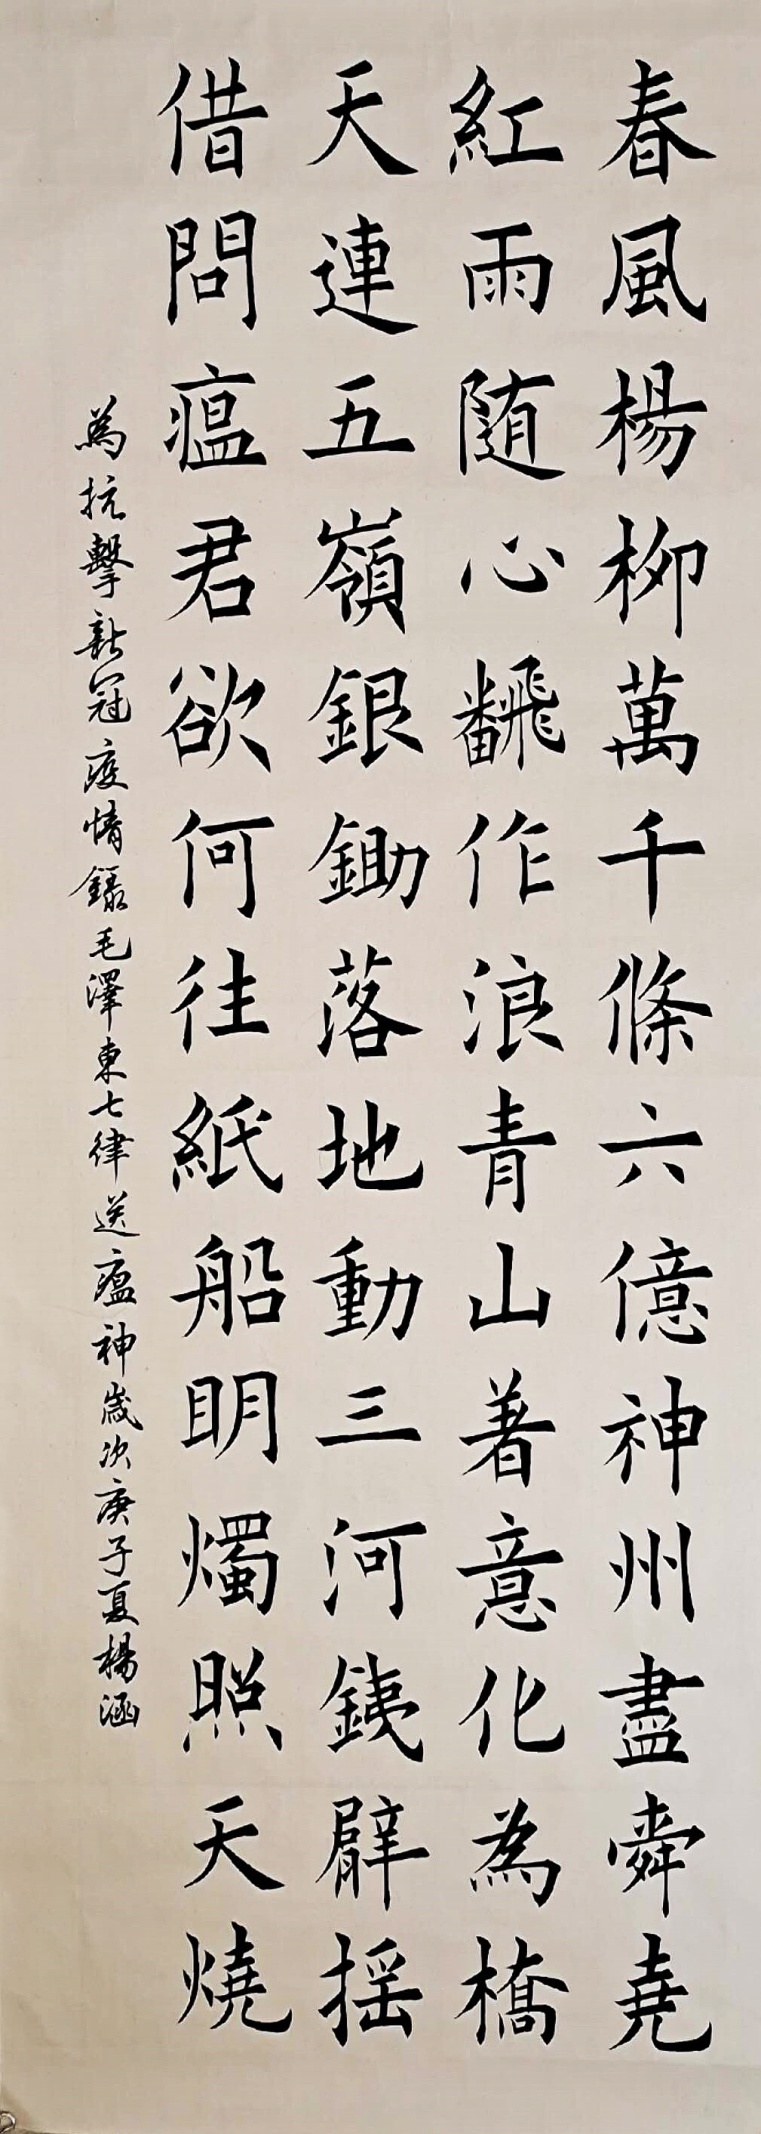 春風楊柳萬千條六億神州盡舜堯
紅雨随心飜作浪青山著意化為橋
天連五嶺銀鋤落地動三河鐵臂摇
借問瘟君欲何往紙船明燭照天燒
為抗擊新冠疫情錄毛澤東七律送瘟神歲次庚子夏楊涵